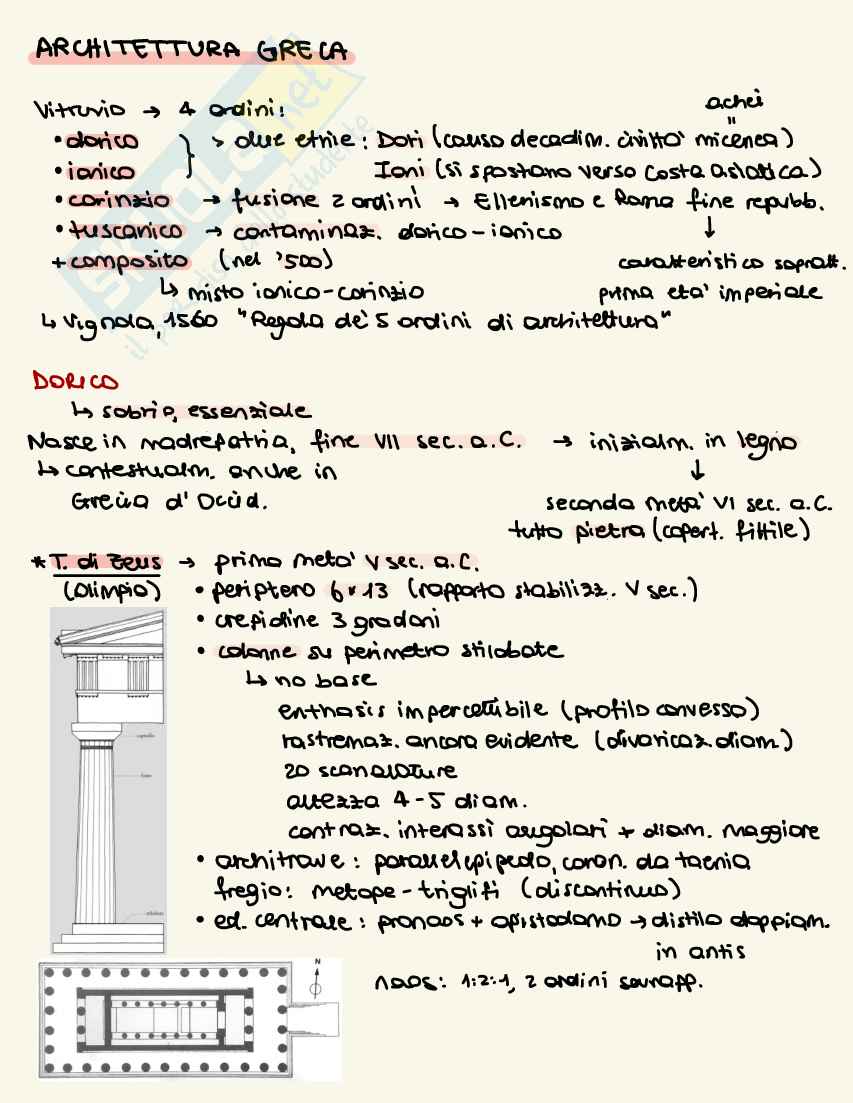 ARCHITETTURA GRECA
Vitruvio → 4 ordini:
achei
"
• dorico } > due etnie: Dori (causo decadim. civiltà micenea)
• ionico Ioni (si spostano verso costa asiatica)
• corinzio → fusione 2 ordini → Ellenismo e Roma fine repubb.
• tuscanico → contaminaz. dorico-ionico ↓
+ composito (nel '500) caratteristico sopratt.
↳ misto ionico-corinzio prima età imperiale
↳ Vignola, 1560 "Regola de' 5 ordini di architettura"
DORICO
↳ sobrio, essenziale
Nasce in madrepatria, fine VII sec. a.C. → inizialm. in legno
↳ contestualm. anche in ↓
Grecia d'Occid. seconda metà VI sec. a.C.
tutto pietra (copert. fittile)
* T. di Zeus → prima metà V sec. a.C.
(Olimpia) • periptero 6x13 (rapporto stabilizz. V sec.)
• crepidine 3 gradoni
• colonne su perimetro stilobate
↳ no base
enthasis impercettibile (profilo convesso)
rastremaz. ancora evidente (divaricaz. diam.)
20 scanalature
altezza 4-5 diam.
contraz. interassi angolari + diam. maggiore
• architrave: parallelepipedo, coron. da taenia
fregio: metope-triglifi (discontinuo)
• ed. centrale: pronaos + opistodomo → distilo doppiam.
in antis
naos: 1:2:1, 2 ordini sovrapp.
capitello
fusto
stilobate
N
skuola.net
il paradiso dello studente